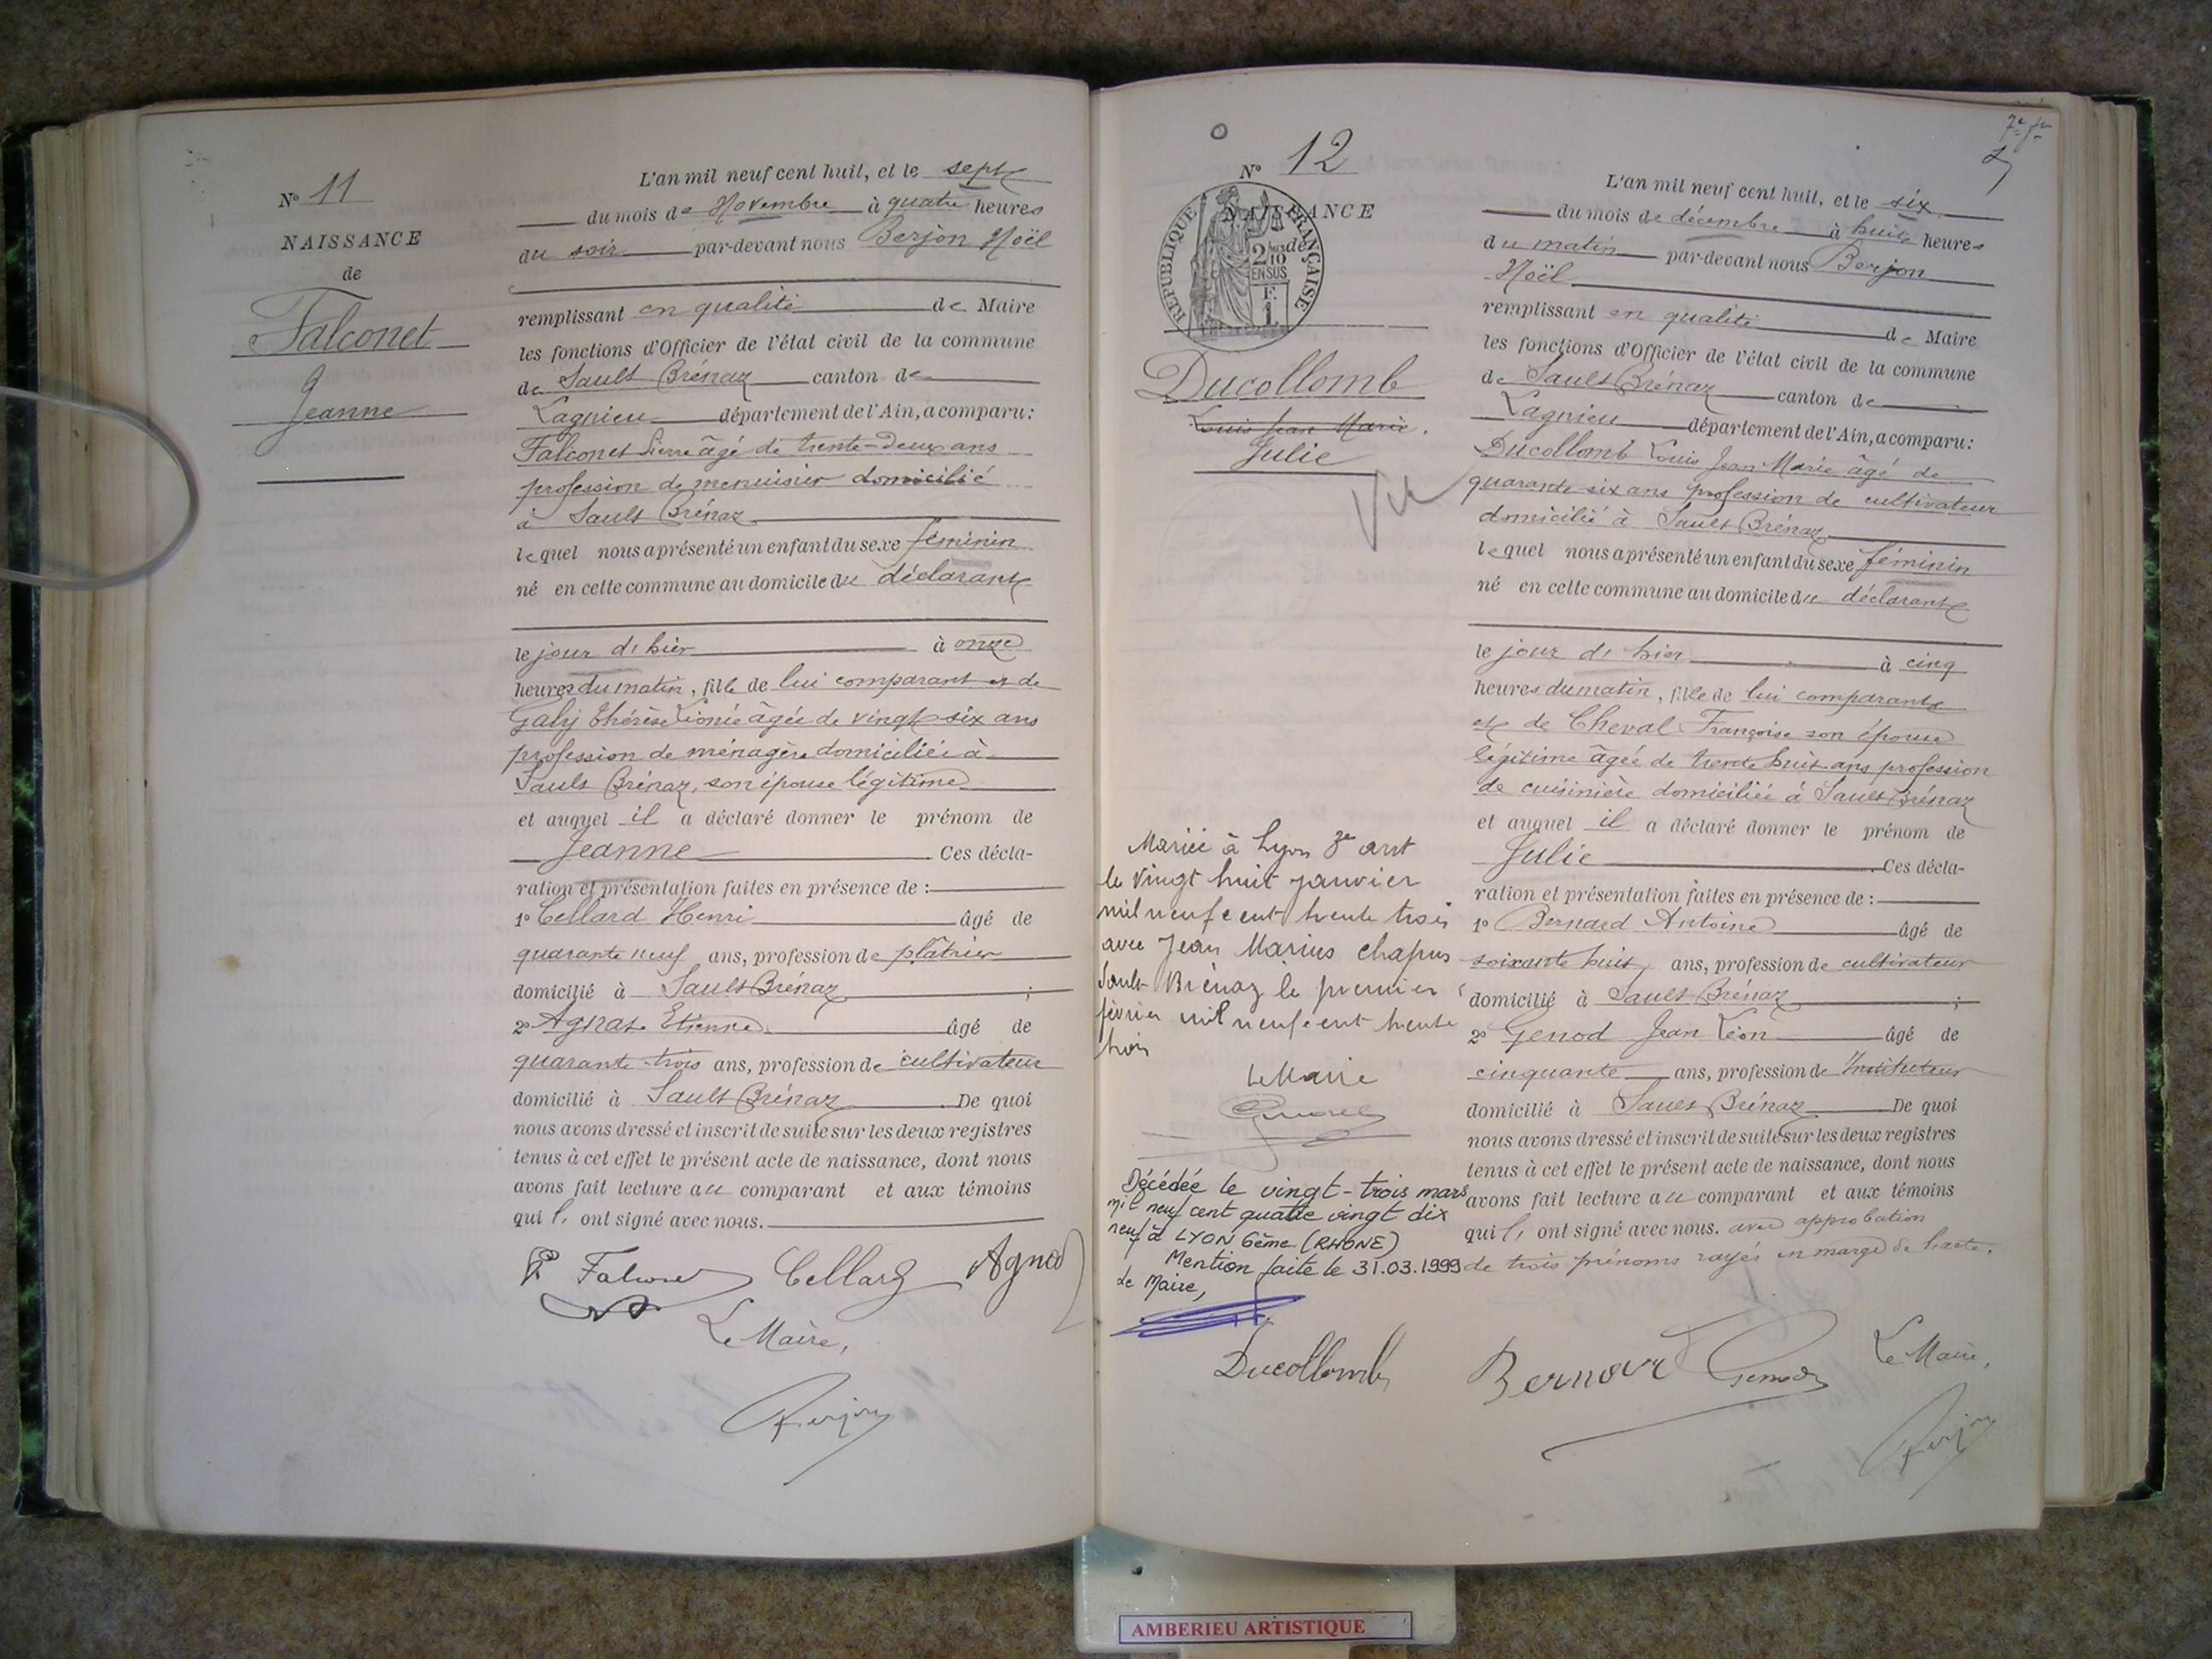 Nº 11
NAISSANCE
de
Falconet
Jeanne
L'an mil neuf cent huit, et le sept
du mois de Novembre à quatre heures
du soir par-devant nous Berjon Noël
remplissant en qualité de Maire
les fonctions d'Officier de l'état civil de la commune
de Sault Brénaz canton de
Lagnieu département de l'Ain, a comparu:
Falconet Pierre âgé de trente-deux ans
profession de menuisier domicilié
à Sault Brénaz
lequel nous a présenté un enfant du sexe féminin
né en cette commune au domicile du déclarant
le jour d'hier à onze
heures du matin, fille de lui comparant et de
Galy Thérèse Léonie âgée de vingt-six ans
profession de ménagère domiciliée à
Sault Brénaz, son épouse légitime
et auquel il a déclaré donner le prénom de
Jeanne Ces décla-
ration et présentation faites en présence de :
1º Cellard Henri âgé de
quarante neuf ans, profession de plâtrier
domicilié à Sault Brénaz ;
2º Agnat Etienne âgé de
quarante-trois ans, profession de cultivateur
domicilié à Sault Brénaz De quoi
nous avons dressé et inscrit de suite sur les deux registres
tenus à cet effet le présent acte de naissance, dont nous
avons fait lecture au comparant et aux témoins
qui l' ont signé avec nous.
P. Falconet Cellard Agnat
Le Maire,
Berjon
Nº 12
NAISSANCE
de
REPUBLIQUE FRANÇAISE
2/10
EN SUS
F.
1
Ducollomb
Louis Jean Marie.
Julie
Vu
L'an mil neuf cent huit, et le six
du mois de décembre à huit heures
du matin par-devant nous Berjon
Noël
remplissant en qualité de Maire
les fonctions d'Officier de l'état civil de la commune
de Sault Brénaz canton de
Lagnieu département de l'Ain, a comparu:
Ducollomb Louis Jean Marie âgé de
quarante-six ans profession de cultivateur
domicilié à Sault Brénaz
lequel nous a présenté un enfant du sexe féminin
né en cette commune au domicile du déclarant
le jour d'hier à cinq
heures du matin, fille de lui comparant
et de Cheval Françoise son épouse
légitime âgée de trente huit ans profession
de cuisinière domiciliée à Sault Brénaz
et auquel il a déclaré donner le prénom de
Julie Ces décla-
ration et présentation faites en présence de :
1º Bernard Antoine âgé de
soixante huit, ans, profession de cultivateur
domicilié à Sault Brénaz ;
2º Genod Jean Léon âgé de
cinquante ans, profession de Instituteur
domicilié à Sault Brénaz De quoi
nous avons dressé et inscrit de suite sur les deux registres
tenus à cet effet le présent acte de naissance, dont nous
avons fait lecture au comparant et aux témoins
qui l' ont signé avec nous. avec approbation
de trois prénoms rayés en marge de l'acte.
Mariée à Lyon 3e arrt
le vingt huit janvier
mil neuf cent trente trois
avec Jean Marius Chapus
Sault-Brénaz le premier
février mil neuf cent trente
trois
Le Maire
Décédée le vingt-trois mars
mil neuf cent quatre vingt dix
neuf à LYON 6ème (RHONE)
Mention faite le 31.03.1999
Le Maire,
Ducollomb Bernard Genod Le Maire,
Berjon
AMBERIEU ARTISTIQUE